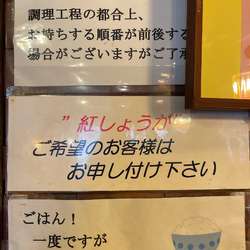 調理工程の都合上、
お待ちする順番が前後する
場合がございますがご了承
"紅しょうが"
ご希望のお客様は
お申し付け下さい
ごはん！
一度ですが